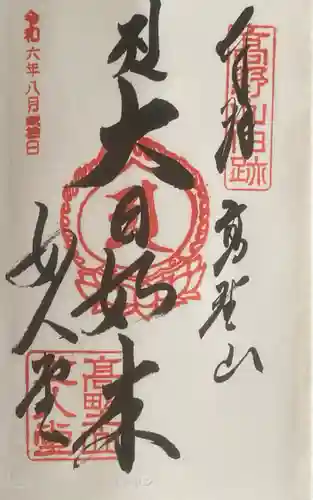 奉拝
高野山
大日如来
女人堂
令和六年八月吉日
高野山
女人堂